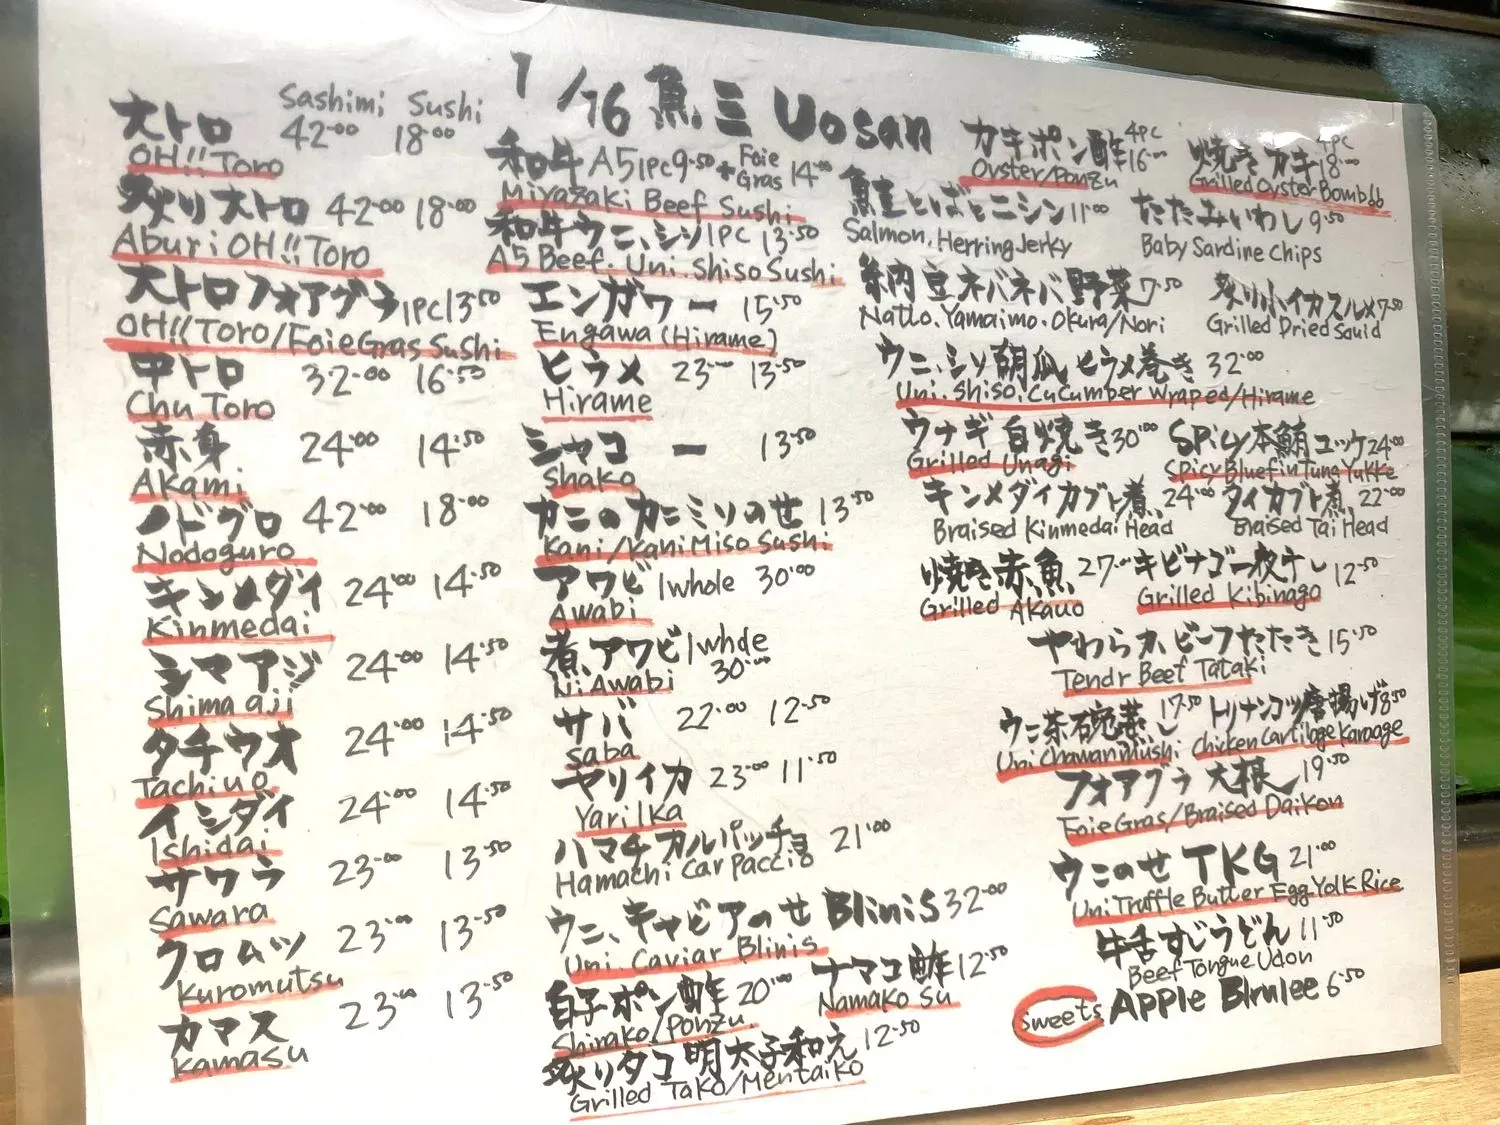 1/16 魚三 Uosan
Sashimi Sushi
大トロ 42.00 18.00
OH!! Toro
炙り大トロ 42.00 18.00
Aburi OH!! Toro
大トロフォアグラ 1PC 13.50
OH!! Toro/Foie Gras Sushi
中トロ 32.00 16.50
Chu Toro
赤身 24.00 14.50
Akami
ノドグロ 42.00 18.00
Nodoguro
キンメダイ 24.00 14.50
Kinmedai
シマアジ 24.00 14.50
Shima aji
タチウオ 24.00 14.50
Tachiuo
イシダイ 24.00 14.50
Ishidai
サワラ 23.00 13.50
Sawara
クロムツ 23.00 13.50
Kuromutsu
カマス 23.00 13.50
Kamasu
和牛 A5 1pc 9.50 + Foie Gras 14.00
Miyazaki Beef Sushi
和牛ウニ、シソ 1PC 13.50
A5 Beef. Uni. Shiso Sushi
エンガワ ー 15.50
Engawa (Hirame)
ヒラメ 23.00 13.50
Hirame
シャコ ー 13.50
Shako
カニのカニミソのせ 13.50
Kani/Kani Miso Sushi
アワビ 1 whole 30.00
Awabi
煮アワビ 1 whole 30.00
Ni Awabi
サバ 22.00 12.50
Saba
ヤリイカ 23.00 11.50
Yari Ika
ハマチカルパッチョ 21.00
Hamachi Carpaccio
ウニ、キャビアのせ Blinis 32.00
Uni. Caviar Blinis
白子ポン酢 20.00
Shirako/Ponzu
ナマコ酢 12.50
Namako Su
炙りタコ明太子和え 12.50
Grilled Tako/Mentaiko
カキポン酢 4PC 16.00
Oyster/Ponzu
焼きカキ 4PC 18.00
Grilled Oyster Bomb
鮭とばとニシン 11.00
Salmon, Herring Jerky
たたみいわし 9.50
Baby Sardine Chips
納豆ネバネバ野菜 7.50
Natto. Yamaimo. Okura/Nori
炙り小イカスルメ 7.50
Grilled Dried Squid
ウニ、シソ胡瓜ヒラメ巻き 32.00
Uni. Shiso. Cucumber Wraped/Hirame
ウナギ白焼き 30.00
Grilled Unagi
SPicy本鮪ユッケ 24.00
Spicy Bluefin Tuna Yukke
キンメダイカブト煮 24.00
Braised Kinmedai Head
タイカブト煮 22.00
Braised Tai Head
焼き赤魚 27.00
Grilled Akauo
キビナゴ一夜干し 12.50
Grilled Kibinago
やわらかビーフたたき 15.50
Tendr Beef Tataki
ウニ茶碗蒸し 17.50
Uni Chawanmushi
トリナンコツ唐揚げ 8.50
Chicken Cartilage Karaage
フォアグラ大根 19.50
Foie Gras/Braised Daikon
ウニのせTKG 21.00
Uni Truffle Butter Egg Yolk Rice
牛舌すじうどん 11.50
Beef Tongue Udon
Sweets Apple Blrulee 6.50